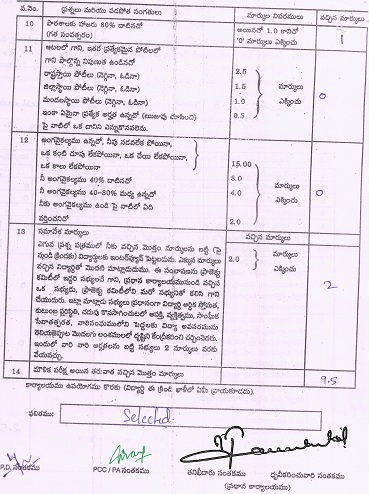 వ.నెం. ప్రశ్నలు మరియు వడపోత సంగతులు మార్కుల వివరములు వచ్చిన మార్కులు
10 పాఠశాలకు హాజరు 80% దాటినచో అయినచో 1.0 కానిచో 1
(గత సంవత్సరం) '0' మార్కులు ఎక్కించు
11 ఆటలలో గాని, ఇతర ప్రత్యేకమైన పోటీలలో
గాని పాల్గొన్న నిపుణత ఉండినచో
రాష్ట్రస్థాయి పోటీలు (నెగ్గినా, ఓడినా) 2.5
జిల్లాస్థాయి పోటీలు (నెగ్గినా, ఓడినా) 1.5 మార్కులు 0
మండలస్థాయి పోటీలు (నెగ్గినా, ఓడినా) 1.0 ఎక్కించు
ఇంకా ఏమైనా ప్రత్యేక అర్హత ఉన్నచో (ఋజువు చూపించి) 0.5
పై వాటిలో ఒక దానిని ఎన్నుకొనవలెను.
12 అంగవైకల్యము ఉన్నచో, నీవు నడవలేక పోయినా,
ఒక కంటి చూపు లేకపోయినా, ఒక చేయి లేకపోయినా, 15.00
ఒక కాలు లేకపోయినా
నీ అంగవైకల్యము 40% దాటినచో 8.0 మార్కులు
నీ అంగవైకల్యము 40-30% మధ్య ఉన్నచో 4.0 ఎక్కించు 0
నీకు అంగవైకల్యము ఉండి పై వాటిలో ఏది
వర్తించనిచో 2.0
13 సమావేశ మార్కులు వచ్చిన మార్కులు
ఎగువ ప్రశ్న పత్రములో నీకు వచ్చిన మొత్తం మార్కులను బట్టి (పై 2.0 మార్కులు 2
నుండి క్రిందకు) విద్యార్థులకు ఇంటర్వ్యూకై పెట్టబడును. ఎక్కువ మార్కులు ఎక్కించు
వచ్చిన విద్యార్థితో మొదట మాట్లాడుదుము. ఈ సంభాషణను ప్రాజెక్ట్
కమిటీలో ఇద్దరి సభ్యులచే గాని, ప్రధాన కార్యాలయమునుండి వచ్చిన
ఒక సభ్యుడు, ప్రాజెక్ట్ కమిటీలోని మరో సభ్యునితో కలిసి గాని
చేయుదురు. ఇట్లా మాట్లాడు సభ్యులు ప్రధానంగా విద్యార్థి ఆర్థిక స్తోమత,
కుటుంబ పరిస్థితి, చదువు కొనసాగించుటలో ఆసక్తి, వ్యక్తిత్వము, సాంఘిక
14 మౌఖిక పరీక్ష అయిన తరువాత వచ్చిన మొత్తం మార్కులు 9.5
కార్యాలయము ఉపయోగము కొరకు (విద్యార్థి ఈ క్రింది ఖాళీలో ఏమీ వ్రాయకూడదు).
ఫలితము: Selected
P.D, సంతకము PCC / PA సంతకము తనిఖీదారు సంతకము ధృవీకరించువారి సంతకము
(ప్రధాన కార్యాలయము)